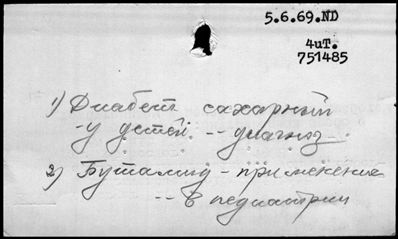 5.6.69.ND
4иТ.
751485
1) Диабет сахарный
- у детей. -- диагноз
2) Бутамид - применение
-- в педиатрии